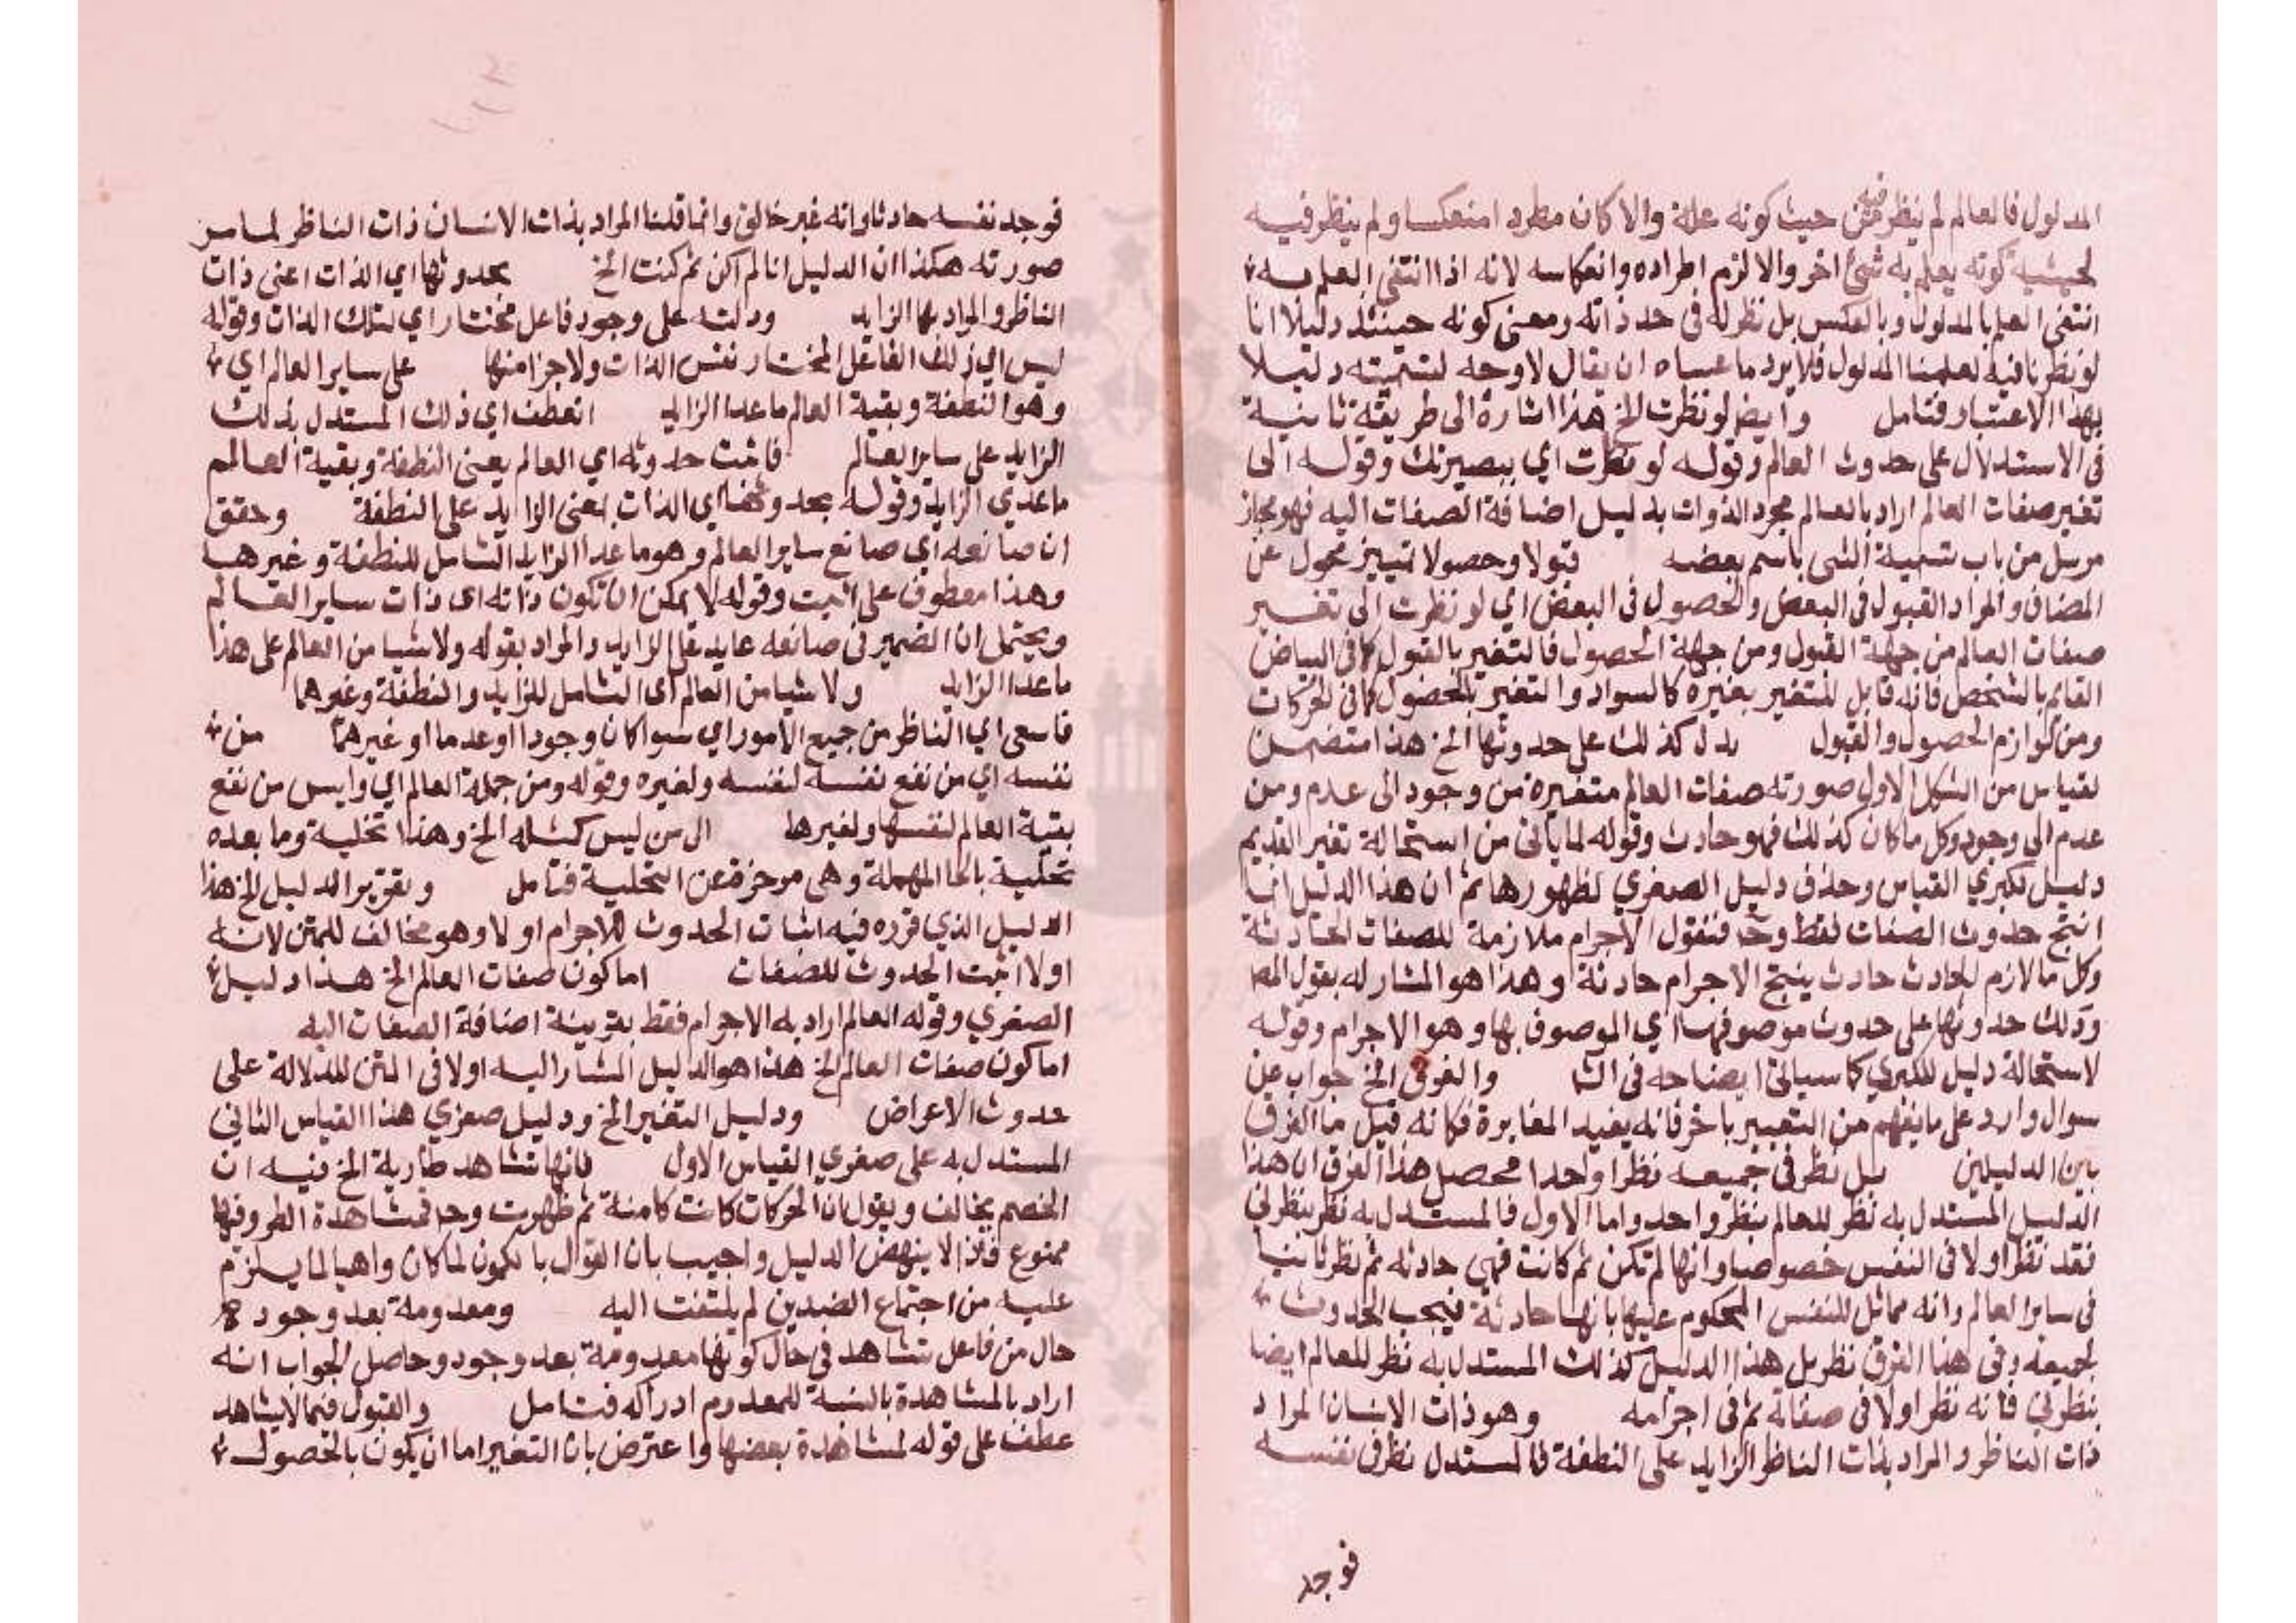 المدلول فالعالم لم ينظر فيه من حيث كونه علة والا كان مطردا منعكسا ولم ينظر فيه
لحيثية كونه يعلم به شئ اخر والا لزم اطراده وانعكاسه لانه اذا انتفى العلم به
انتفى العلم بالمدلول وبالعكس بل نظر له فى حد ذاته ومعنى كونه حينئذ دليلا انا
لو نظرنا فيه لعلمنا المدلول فلا يرد ما عساه ان يقال لا وجه لتسميته دليلا
بهذا الاعتبار فتامل وايضا لو نظرت الخ هذا اشارة الى طريقة ثانية
فى الاستدلال على حدوث العالم وقوله لو نظرت اي ببصيرتك وقوله الى
تغير صفات العالم اراد بالعالم مجرد الذوات بدليل اضافة الصفات اليه فهو مجاز
مرسل من باب تسمية الشى باسم بعضه قبولا وحصولا تمييز محول عن
المضاف والمراد القبول فى البعض والحصول فى البعض اي لو نظرت الى تغير
صفات العالم من جهة القبول ومن جهة الحصول فالتغير بالقبول كما فى البياض
القائم بالشخص فانه قابل للتغير بغيره كالسواد والتغير بالحصول كما فى الحركات
ومن لوازم الحصول والقبول يدل كذلك على حدوثها الخ هذا متضمن
لقياس من الشكل الاول صورته صفات العالم متغيرة من وجود الى عدم ومن
عدم الى وجود وكل ما كان كذلك فهو حادث وقوله لما ياتى من استحالة تغير القديم
دليل لكبري القياس وحذف دليل الصغري لظهورها ثم ان هذا الدليل انما
انتج حدوث الصفات فقط وح فنقول الاجرام ملازمة للصفات الحادثة
وكل ما لازم للحادث حادث ينتج الاجرام حادثة وهذا هو المشار له بقول المص
ودلك حدوثها على حدوث موصوفها اي الموصوف بها وهو الاجرام وقوله
لاستحالة دليل للكبري كما سياتى ايضاحه فى الشا والفرق الخ جواب عن
سوال وارد على ما يفهم من التعبير باخر فانه يفيد المغايرة فكانه قيل ما الفرق
بين الدليلين بل نظر فى جميعه نظرا واحدا محصل هذا الفرق ان هذا
الدليل المستدل به نظر للعالم بنظر واحد واما الاول فالمستدل به نظر بنظرين
فقد نظر اولا فى النفس خصوصا وانها لم تكن ثم كانت فهى حادثه ثم نظر ثانيا
فى ساير العالم وانه مماثل للنفس المحكوم عليها بانها حادثة فيجب الحدوث
لجميعه وفى هذا الفرق نظر بل هذا الدليل كذلك المستدل به نظر للعالم ايضا
بنظرين فانه نظر اولا فى صفاته ثم فى اجرامه وهو ذات الانسان المراد
ذات الناظر والمراد بذات الناظر الزايد على النطفة فالمستدل نظر فى نفسه
فوجد
فوجد نفسه حادثا وانه غير خالق وانما قلنا المراد بذات الانسان ذات الناظر لما مر
صورته هكذا ان الدليل انا لم اكن ثم كنت الخ بحدوثها اي الذات اعنى ذات
الناظر والمراد بها الزايد ودلته على وجود فاعل مختار اي لتلك الذات وقوله
ليس اي ذلك الفاعل المختار نفس الذات ولا جزا منها على ساير العالم اي
وهو النطفة وبقية العالم ما عدا الزايد انعطف اي ذلك المستدل بذلك
الزايد على ساير العالم فاثبت حدوثه اي العالم يعنى النطفة وبقية العالم
ما عدي الزايد وقوله بحدوثها اي الذات يعنى الزايد على النطفة وحقق
ان صانعه اي صانع ساير العالم وهو ما عدا الزايد الشامل للنطفة وغيرها
وهذا معطوف على اثبت وقوله لا يمكن ان تكون ذاته اى ذات ساير العالم
ويحتمل ان الضمير فى صانعه عايد على الزايد والمراد بقوله ولا شيا من العالم على هذا
ما عدا الزايد ولا شيا من العالم اى الشامل للزايد والنطفة وغيرهما
فاسعى اي الناظر من جميع الامور اي سوا كان وجودا او عدما او غيرهما من
نفسه اي من نفع نفسه لنفسه ولغيره وقوله ومن جملة العالم اي وايس من نفع
بقية العالم لنفسها ولغيرها الى من ليس كمثله الخ وهذا تخلية وما بعده
تحلية بالحا المهملة وهى موخرة عن التخلية فتامل وتقرير الدليل الخ هذا
الدليل الذي قرره فيه اثبات الحدوث للاجرام اولا وهو مخالف للمتن لانه
اولا اثبت الحدوث للصفات اما كون صفات العالم الخ هذا دليل
الصغري وقوله العالم اراد به الاجرام فقط بقرينة اضافة الصفات اليه
اما كون صفات العالم الخ هذا هو الدليل المشار اليه اولا فى المتن للدلالة على
حدوث الاعراض ودليل التغير الخ ودليل صغري هذا القياس الثانى
المستدل به على صغري القياس الاول فانها تشاهد طارية الخ فيه ان
الخصم يخالف ويقول ان الحركات كانت كامنة ثم ظهرت وح فمشاهدة الطرو فيها
ممنوع فاذا لا ينهض الدليل واجيب بان القول بالكمون لما كان واهيا لما يلزم
عليه من اجتماع الضدين لم يلتفت اليه ومعدومة بعد وجود
حال من فاعل تشاهد فى حال كونها معدومة بعد وجود وحاصل الجواب انه
اراد بالمشاهدة بالنسبة للمعدوم ادراكه فتامل والقبول فيما لا يشاهد
عطف على قوله لمشاهدة بعضها واعترض بان التغير اما ان يكون بالحصول